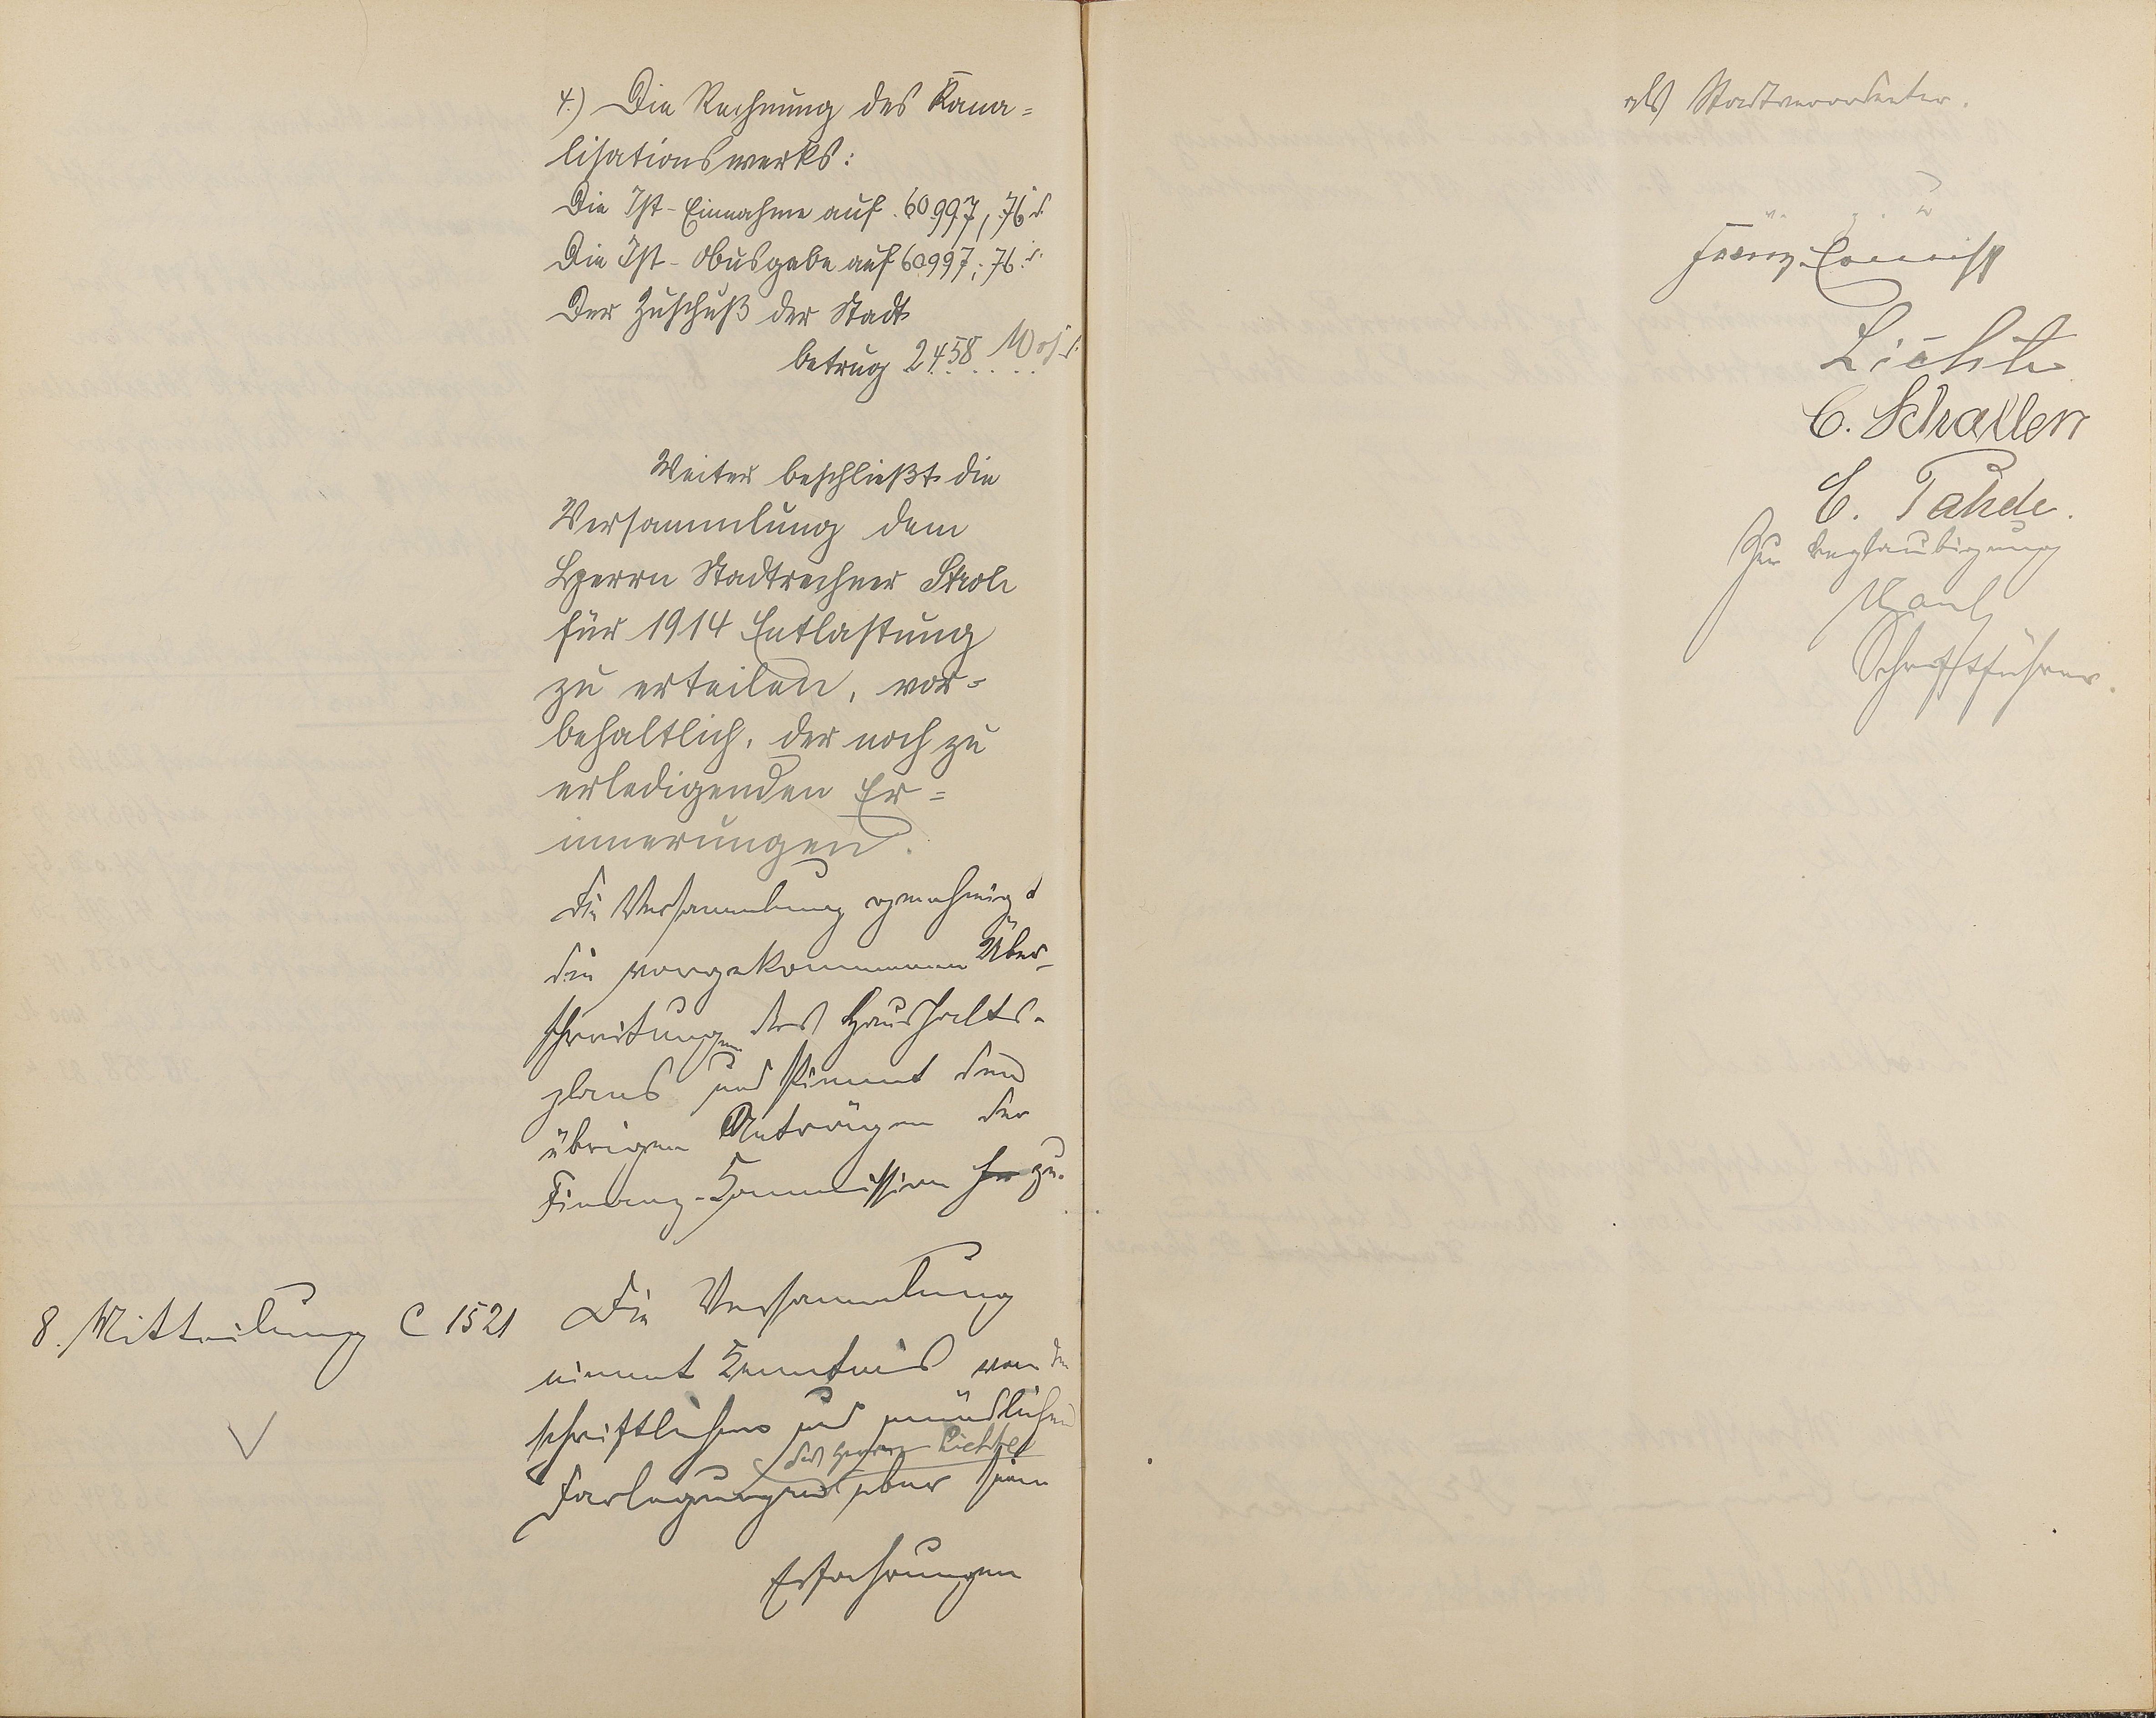 4.) Die Rechnung des Kana=
lisationswerks:
Die Ist-Einnahme auf 60997,76 d
Die Ist-Ausgabe auf 60997,76 d.
Der Zuschuß der Stadt
betrug 2458
Weiter beschließt die
Versammlung dem
Herrn Stadtrechner Stroh
für 1914 Entlastung
zu erteilen, vor=
behaltlich, der noch zu
erledigenden Er=
innerungen.
Die Versammlung genehmigt
die vorgekommenen Über-
schreitungen des Haushalts-
plans und stimmt den
übrigen Anträgen der
Finanz-Kommission zu.
8. Mitteilung C 1521
Die Versammlung
nimmt Kenntnis von den
schriftlichen und mündlichen
des Herrn Lichte
Darlegungen über seine
Erfahrungen
als Stadtverordneter.
v. g. u.
Franz
Lichte
C. Schaller
E. Pahde.
Zur Beglaubigung
Schriftführer.